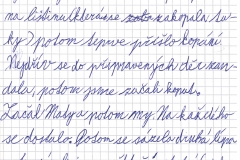 na lištinu (která se zakopala ta-
ky) potom teprve přišlo kopání
Nejdřív se do připravených děr zan-
dala, potom jsme začali kopat.
Začal Matya potom my. Na každého
se dostalo. Potom se sázela druhá lípa